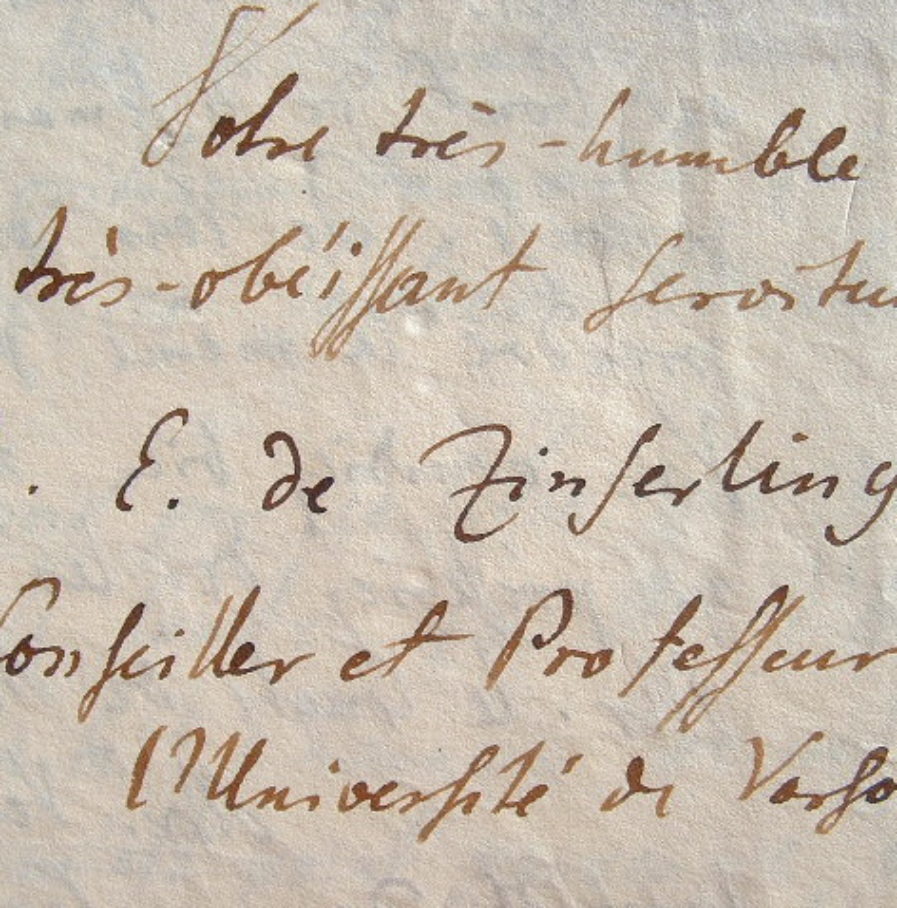 Votre très-humble
très-obéissant servitu
. E. de Zinserling
Conseiller et Professeur
l'Université de Varso